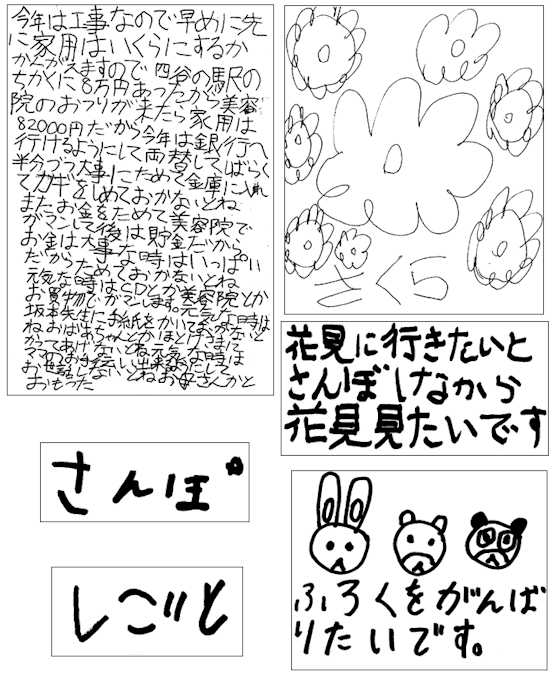 今年は工事なので早めに先
に家用はいくらにするか
かんがえますので四谷の駅の
ちかくに8万円あったから美容
院のおつりが来たら家用は
82000円だから今年は銀行へ
行けるようにして両替してばらく
半分づつ大事にためる金庫に入れ
てカギをしめておかないとね
またお金をためて美容院で
ガマンして後は貯金だから
お金は大事な時はいっぱい
だからためておかないとね
元気な時はCDとか美容院とか
お買物でガマンします。元気な時は
坂本先生にお手紙をかいておかないと
ねおばあちゃんとか
かってあげないとね元気な時は
ママの
お世話しないとねお母さんかと
おもった
さくら
花見に行きたいと
さんぽしなから
花見見たいです
さんぽ
しごと
ふろくをがんば
りたいです。